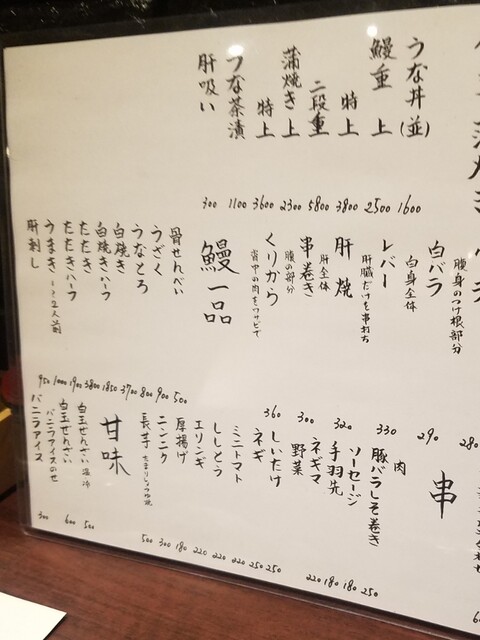 うな丼(並) 1600
鰻重 上 2500
特上 3800
二段重 5800
蒲焼き 上 2300
特上 3600
うな茶漬 1100
肝吸い 300
腹身のつけ根部分
白バラ 290
白身全体
レバー 330
肝臓だけを串打ち
肝焼 320
肝全体
串巻き 300
腹の部分
くりから 360
背中の肉をワサビで
鰻一品
骨せんべい 500
うざく 900
うなとろ 800
白焼き 3700
白焼きハーフ 1850
たたき 3800
たたきハーフ 1900
うまき 1~2人前 1000
肝刺し 950
280
串
肉
豚バラしそ巻き 250
ソーセージ 180
手羽先 180
ネギマ 220
野菜
しいたけ 250
ネギ 250
ミニトマト 220
ししとう 220
エリンギ 220
厚揚げ 180
ニンニク 300
長芋 500
甘味
白玉ぜんざい 温冷 500
白玉ぜんざい 600
バニラアイスのせ
バニラアイス 300